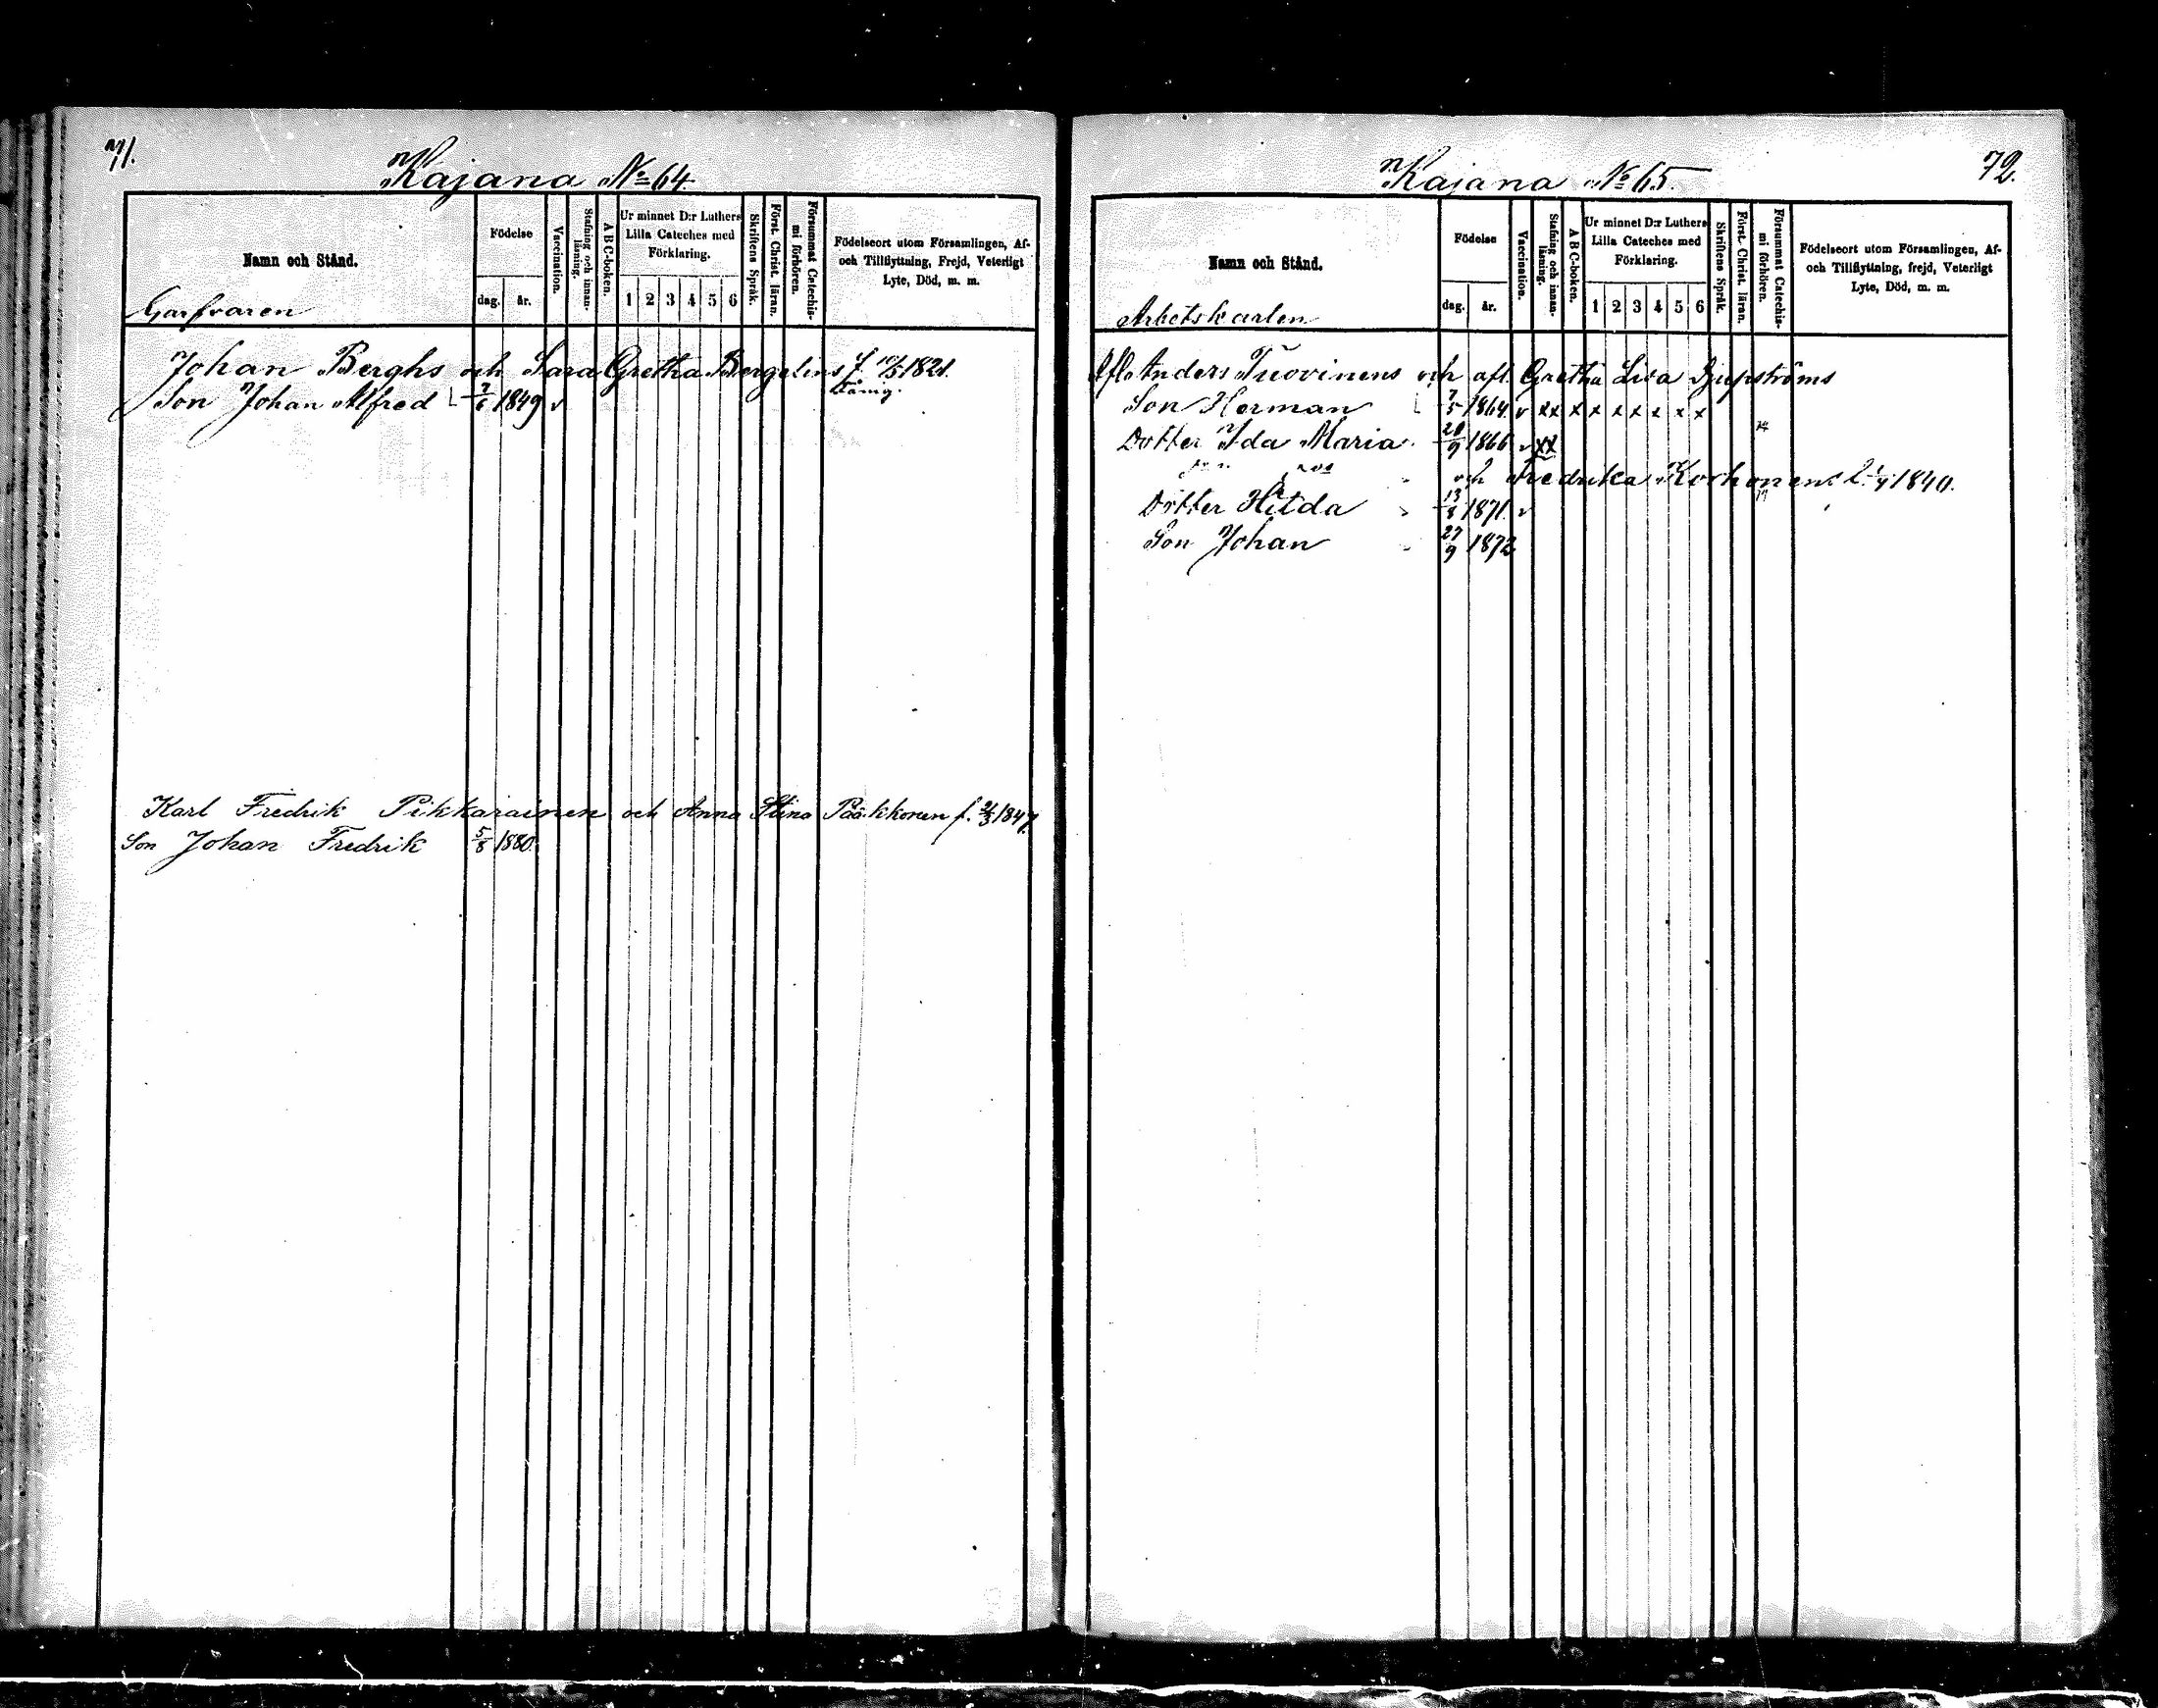 71.
Kajana No 64
Namn och Stånd.
Garfvaren
Födelse
dag. år.
Vaccination.
Stafning och innanläsning.
ABC-boken.
Ur minnet D:r Luthers
Lilla Cateches med
Förklaring.
1 2 3 4 5 6
Skriftens Språk.
Först. Christ. läran.
Försummat Catechismi förhören.
Födelseort utom Församlingen, Af-
och Tillflyttning, Frejd, Veterligt
Lyte, Död, m. m.
Johan Berghs och Sara Gretha Bergelins f. 10/5 1821.
Son Johan Alfred 7/6 1849 v
Karl Fredrik Pikkarainen och Anna Stina Pääkkonen f. 2/3 1847
Son Johan Fredrik 5/8 1880.
72.
Kajana No 65.
Namn och Stånd.
Arbetskarlen
Födelse
dag. år.
Vaccination.
Stafning och innanläsning.
ABC-boken.
Ur minnet D:r Luthers
Lilla Cateches med
Förklaring.
1 2 3 4 5 6
Skriftens Språk.
Först. Christ. läran.
Försummat Catechismi förhören.
Födelseort utom Församlingen, Af-
och Tillflyttning, frejd, Veterligt
Lyte, Död, m. m.
Afl. Anders Tuovinens och afl. Gretha Lisa Djupströms
Son Herman 7/5 1864 v xx x x x x x x x
Dotter Ida Maria 20/9 1866 v xx
och Fredrika Korhonens 1840.
Dotter Hilda 13/8 1871 v
Son Johan 27/9 1872